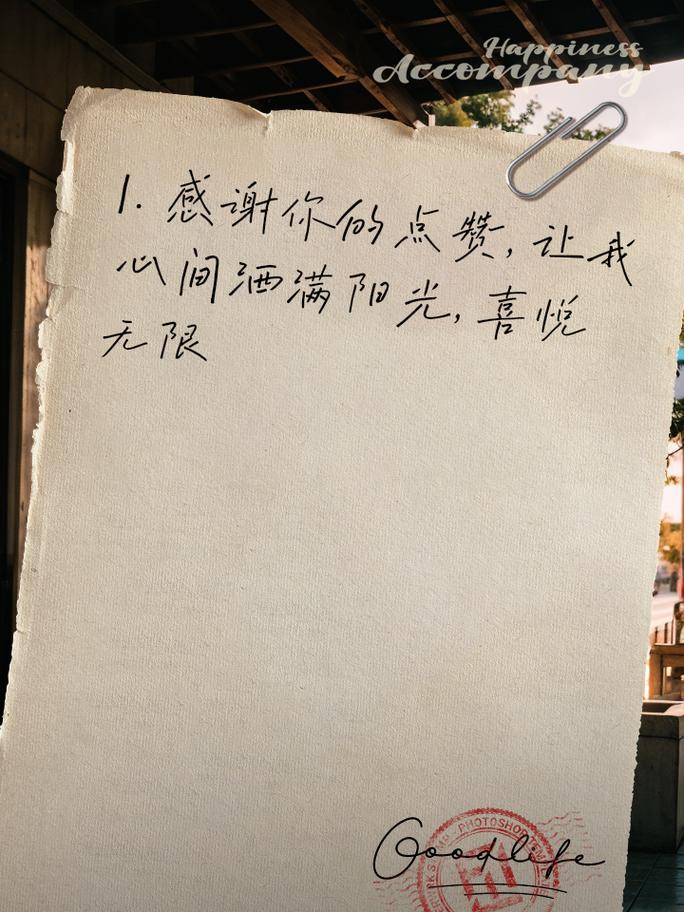 Happiness
Accompany
1. 感谢你的点赞,让我
心间洒满阳光,喜悦
无限
PHOTOSHOP
Goodlife